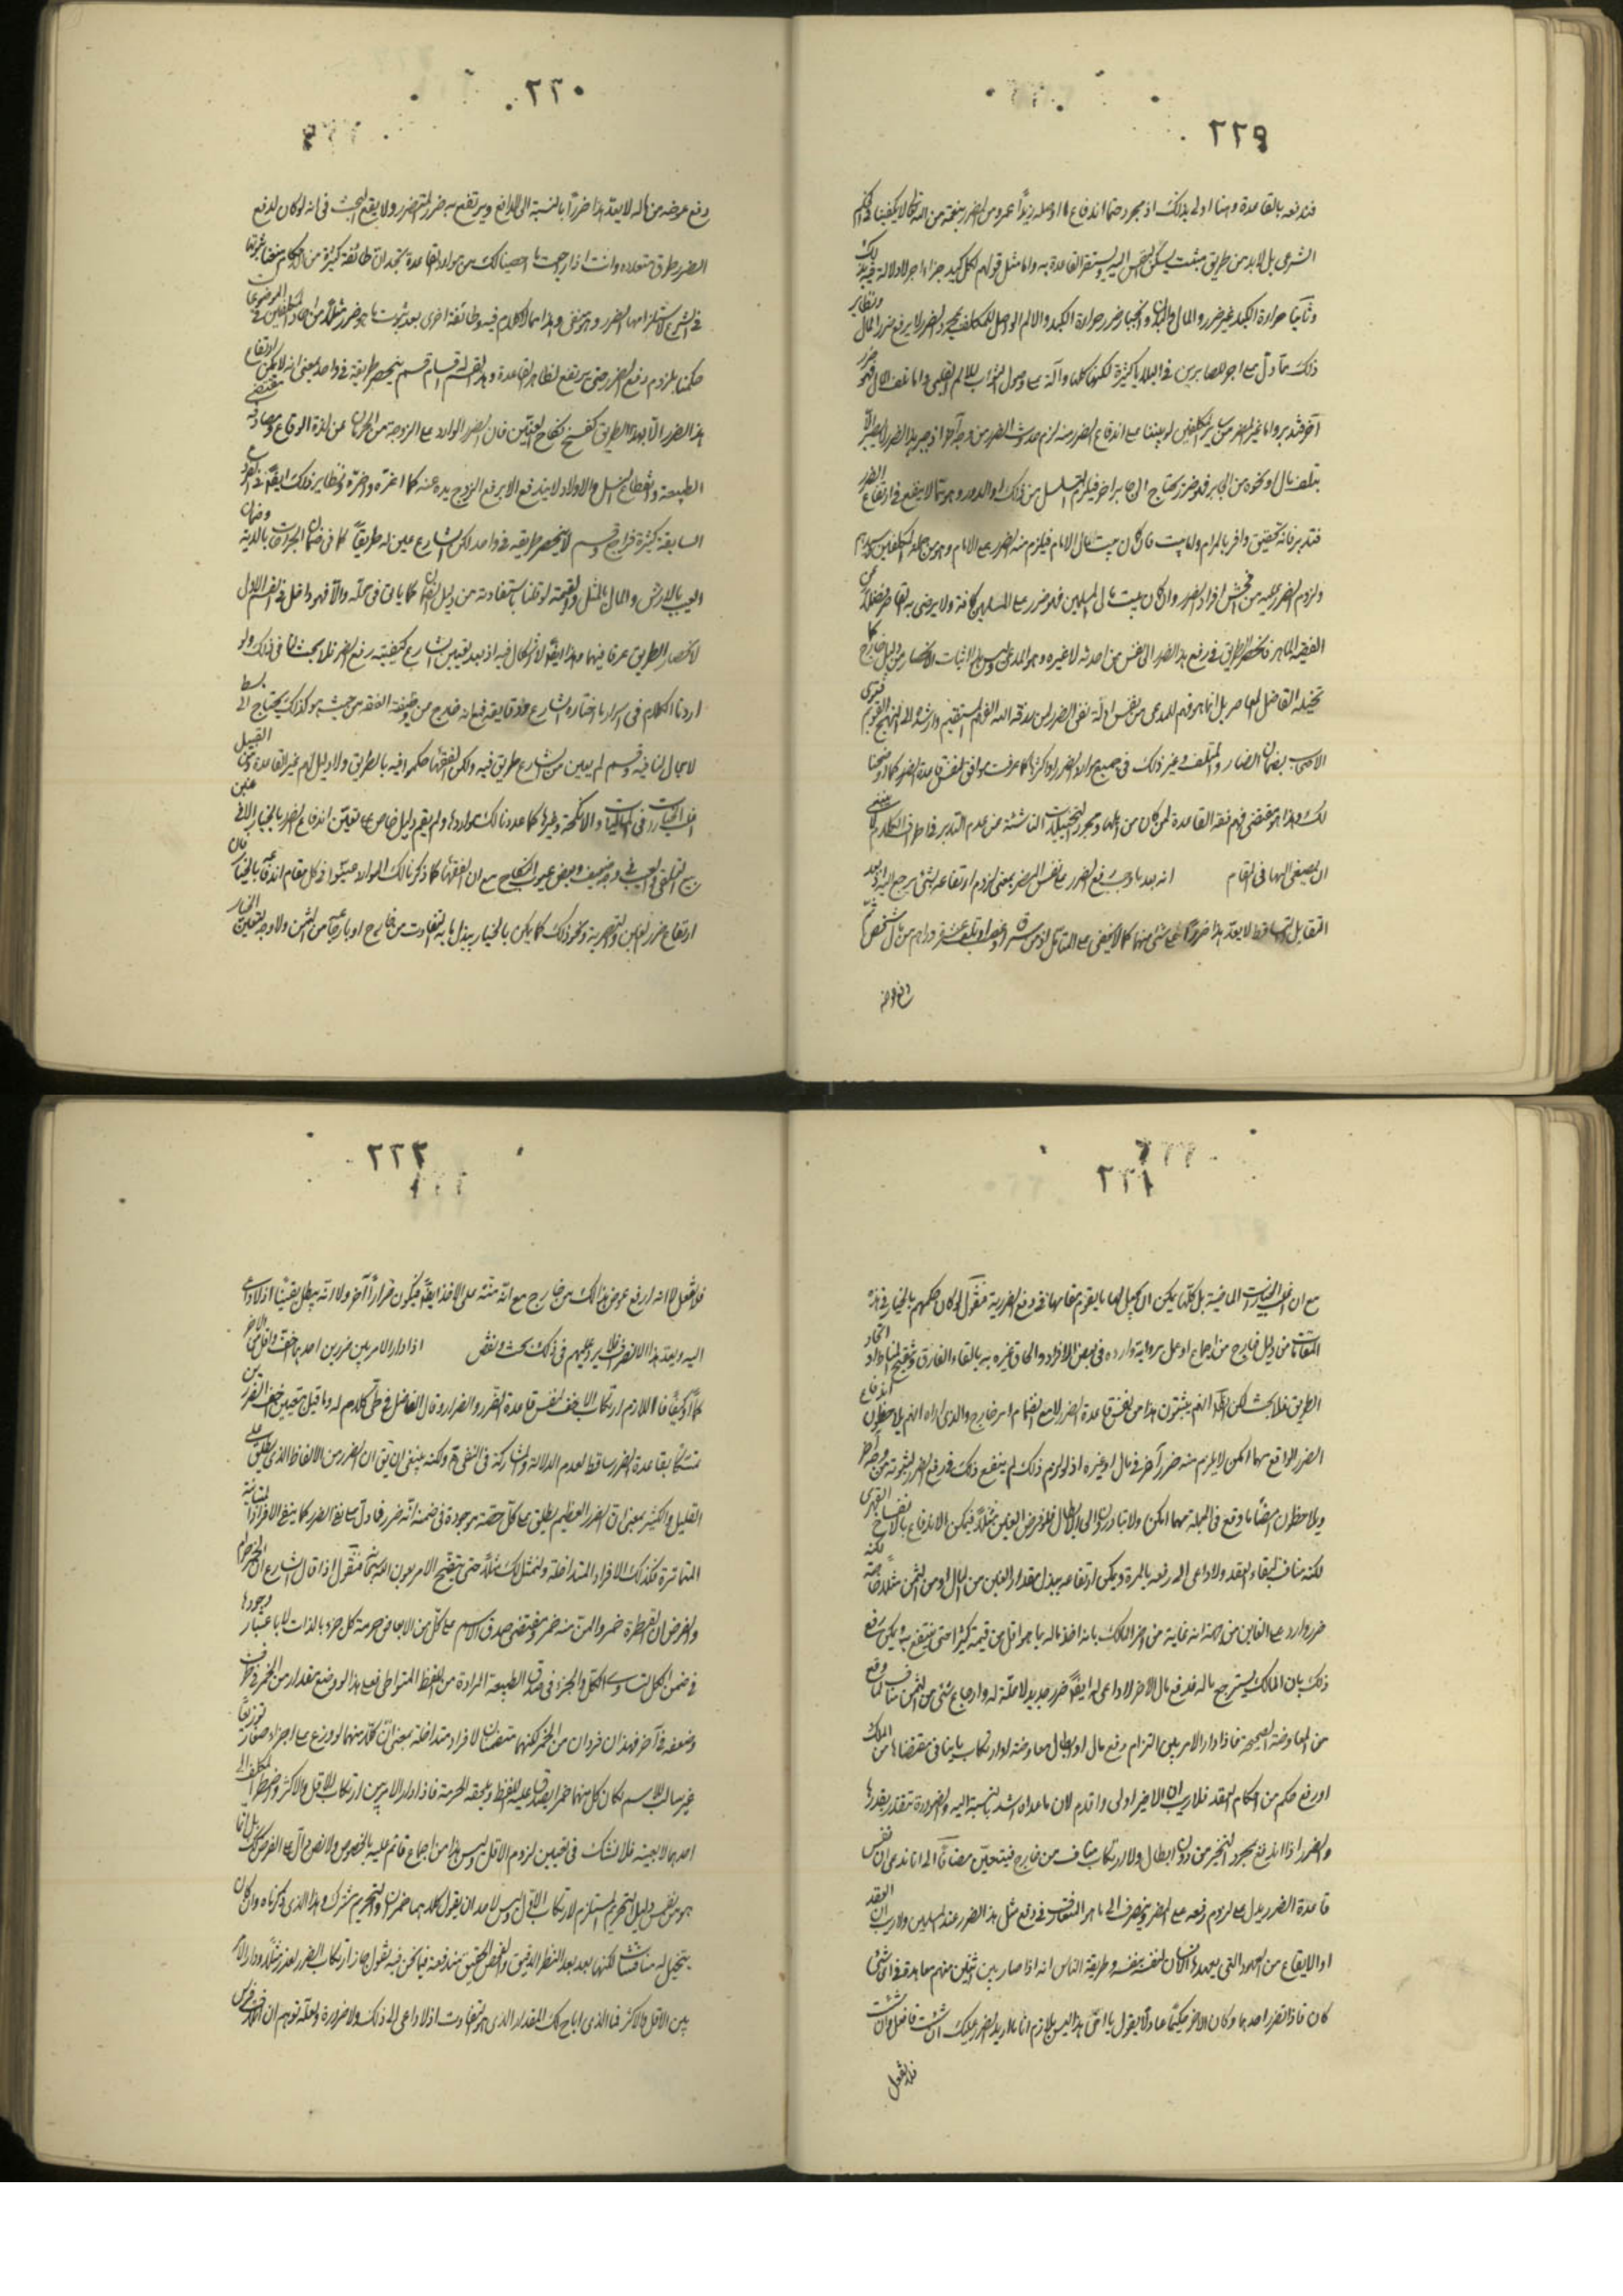 ٢٢٩
فندفعه بالقاعدة وهنا اولى بذلك اذ مجرد احتمال اندفاع
الشرعي بل لابد من طريق مثبت يسكن النفس اليه ويستقر القاعدة به واما مثل قولهم لكل كبد جزاء اجر لا دلالة فيه
وثانيا حرارة الكبد غير ضرر والمال والبدن وانجبار ضرر حرارة الكبد والالم الواصل للمكلف لا يرفع ضرر المال
ذلك ما دل على اجر الصابرين في البلايا كثيرة لكنها كلها دالة على وصول الثواب للالم القلبي واما تلف المال فهو ضرر
آخر فتدبر واما غير المضر من سائر المكلفين لو بنينا على اندفاع الضرر منه لزم حدوث الضرر من جهة اخرى اذ جبر هذا الضرر
بتلف مال او نحوه من الجابر فهو ضرر يحتاج الى جابر آخر فيلزم التسلسل من ذلك او الدور وهو مما لا ينفع في ارتفاع الضرر
فتدبر فانه تحقيق وافر بالمرام واما بيت المال فان كان بيت مال الامام فيلزم منه الضرر على الامام وهو من جملة المكلفين
ولزوم الضرر عليه من افحش افراد الضرر وان كان بيت مال المسلمين فهو ضرر على المسلمين كافة ولا يرضى به القاصر فضلا عن
الفقيه الماهر فانحصر الطريق في رفع هذا الضرر الى نفس من احدثه لا غيره وهو المدعى وليس هذا لاثبات الانحصار من دليل خارج كما
تخيله الفاضل المعاصر بل انما هو فهم المدعى من نفس ادلة نفى الضرر لمن رزقه الله الفهم المستقيم وارشده الى النهج القويم
الاصحاب بضمان الضار والمتلف وغير ذلك في جميع موارد الضرر
لك وهذا هو مقتضى فهم فقه القاعدة لمن كان من اهلها ومجرد التخيلات الناشئة من عدم التدبر في اطراف الكلام لا ينبغي
ان يصغى اليها في المقام انه بعد ما وجب رفع الضرر على نفس المضر بمعنى لزوم ارتفاعه بشيء يرجع اليه
المتقابل التساقط لا يعد هذا ضررا على شيء منهما كما لا يخفى على المتامل
دفع عوضه
٢٣٠
دفع عوضه من ماله لا يعد هذا ضررا بالنسبة الى الدافع ويرتفع به ضرر المتضرر ولا يقع البحث في انه لو كان لدفع
الضرر طرق متعددة وانت اذا راجعت ما احصينا لك من موارد القاعدة تجد ان طائفة كثيرة من الاحكام
في الشرع لاستلزامها الضرر وهو منفى وهذا مما لا كلام فيه وطائفة اخرى بعد ثبوت ما هو ضرر مثلا من احد المكلفين
حكمنا بلزوم رفع الضرر حتى يرتفع لظاهر القاعدة وهذا القسم له اقسام قسم ينحصر طريقه في واحد بمعنى انه لا يمكن ارتفاع
هذا الضرر الا بهذا الطريق كفسخ نكاح العنين فان الضرر الوارد على الزوجة من الحرمان عن لذة الوقاع
الطبيعة وانقطاع النسل والاولاد لا يندفع الا برفع الزوج يده عنه كما اغتره واضره ونظاير ذلك ايضا
السابقة كثيرة فراجع وقسم لا ينحصر طريقه في واحد لكن الشارع عين له طريقا كما في ضمان الجراحات بالدية
العيب بالارش والمال بالمثل والقيمة لو قلنا باستفادته من دليل آخر كما ياتي في محله والا فهو داخل في القسم الاول
لانحصار الطريق عرفا فيهما وهذا ايضا لا اشكال فيه اذ بعد تعيين الشارع كيفيته رفع الضرر فلا بحث لنا في ذلك ولو
اردنا الكلام في اسرار ما اختاره الشارع فذو قايعه فيه انه خارج من وظيفة الفقه من حيث هو كذلك يحتاج الى بسط
لا مجال لنا فيه وقسم لم يعين من الشارع طريق فيه ولكن الفقهاء حكموا فيه بالطريق ولا دليل لهم غير القاعدة
اغلب الخيارات في المعاملات والانكحة وغيرها كما عددنا لك مواردها ولم يقم دليل خاص على تعين اندفاع الضرر بالخيار
بيع التلقي والعيب في وجه ضعيف وبعض عيوب النكاح مع ان الفقهاء كما ذكرنا لك الموارد عينوا في كل مقام اندفاعه بالخيار
ارتفاع ضرر الغبن والتصرية ونحو ذلك كما يمكن بالخيار يبذل ما به التفاوت من خارج او بارجاع من الثمن ولا وجه لتعيين الخيار
٢٣١
مع ان اغلب الخيارات الماضية بل كلها يمكن ان يجعل لها ما يقوم مقامها في دفع الضرر به فنقول لو كان حكمهم بالخيار في هذه
المقامات من دليل خارج من اجماع او عمل برواية واردة في بعض الافراد والحاق غيره به بالقاء الفارق وتنقيح المناط او اتحاد
الطريق فلا بحث لكن الظاهر انهم يثبتون هذا من نفس قاعدة الضرر لا مع انضمام امر خارج والذي اراه انهم يلاحظون اندفاع
الضرر الواقع مهما امكن لا يلزم منه ضرر آخر في مال او غيره اذ لو لزم ذلك لم ينفع ذلك في رفع الضرر لثبوته من وجه آخر
ويلاحظون ايضا ما وقع في المعاملة مهما امكن ولا يبادرون الى الابطال فلو فرض الغبن مثلا فيمكن الاندفاع بالانفساخ القهري
لكنه مناف لبقاء العقد ولا داعي الى رفعه بالمرة ويمكن ارتفاعه ببذل مقدار الغبن من المال او من الثمن مثلا
ضرر وارد على الغابن من جهة انه غايته من اضر المالك بانه اخذ ماله بما هو اقل من قيمة كثيرا حتى ينتفع به
ذلك بان المالك يسترجع ماله فدفع مال الآخر لا داعي له ايضا ضرر جديد لا علة له وارجاع شيء من الثمن مناف لما وقع
من المعاوضة الصحيحة فاذا دار الامر بين التزام دفع مال او ابطال معاوضة او ارتكاب ما ينافي مقتضاها من الملك
او رفع حكم من احكام العقد فلا ريب ان الاخير اولى واقدم لان ما عداه اشد بالنسبة اليه والضرورة تتقدر بقدرها
والضرر اذا اندفع بمجرد التخيير من دون ابطال ولا ارتكاب مناف من خارج فيتعين مضافا الى انا ندعى ان نفس
قاعدة الضرر يدل على لزوم رفعه على المضر وينصرف الى ما هو المتعارف في دفع مثل هذا الضرر عند المسلمين ولا ريب ان العقد
او الايقاع من العهود التي يعهدها الانسان لنفسه بنفسه وطريقة الناس انه اذا صار بين اثنين منهم معاهدة في اي شيء
كان فاذا تضرر احدهما وكان الآخر حكيما عادلا يقول يا اخي هذا ليس بلازم انا ما اريد الضرر عليك ان شئت فافعل وان شئت
فلا تفعل
٢٣٢
فلا تفعل لا انه ارفع عوض هذا لك من خارج مع انه منة على الآخذ ايضا فيكون ضررا آخر ولا انه يبطل يقينا اذ لا داعي
اليه وبعد هذا الانصراف فلا يرد عليهم في ذلك بحث ونقض اذا دار الامر بين ضررين احدهما اخف واقل من الآخر
كما وكيفا فاللازم ارتكاب الاخف لنفس قاعدة الضرر والضرار وقال الفاضل في طي كلام له وما قيل بتعيين اخف الضررين
تمسكا بقاعدة الضرر ساقط لعدم الدلالة والمشاركة في النفي ولكنه ينبغي ان يق ان الضرر من الالفاظ الذي يطلق على
القليل والكثير بمعنى ان الضرر العظيم يطلق على كل حصة موجودة في ضمنه انه ضرر فما دل على نفى الضرر كما ينفى الافراد المتباينة
المتمايزة فكذلك الافراد المتداخلة ولنمثل لك مثلا حتى يتضح الامر بعون الله سبحانه فنقول اذا قال الشارع ان الخمر حرام
والفرض ان القطرة خمر والمن منه خمر ومقتضى صدق الاسم على كل من الابعاض حرمة كل جزء بالذات لا باعتبار وجودها
في ضمن الكل لتساوى الكل والجزء في صدق الطبيعة المرادة من اللفظ المتواطي فعلى هذا لو وضع مقدار من الخمر في ظرف
وضعفه في آخر فهذان فردان من الخمر لكنهما متضمنان لافراد متداخلة بمعنى ان كلا منهما لو وزع على اجزاء صغار توزيعا
غير سالب للاسم لكان كل منهما خمرا يصدق عليه اللفظ ويلحقه الحرمة فاذا دار الامر بين ارتكاب الاقل والاكثر واضطر المكلف الى
احدهما لا بعينه فلا نشك في تعيين لزوم الاقل وليس هذا من اجماع قائم عليه بالخصوص ولا نص دال على الفرض كك بل انما
هو من نفس دليل التحريم المستلزم لارتكاب الاقل وليس لاحد ان يقول كلاهما خمران والتحريم مشترك وهذا الذي ذكرناه وان كان
يتخيل له مناقشات لكنها بعد بعد النظر الدقيق والفحص الحقيق مندفعة فيما نحن فيه نقول جاز ارتكاب الضرر لعذر مثلا ودار الامر
بين الاقل والاكثر فما الذي اباح لك المقدار الذي هو التفاوت اذ لا داعي الى ذلك ولا ضرورة ولعله توهم ان